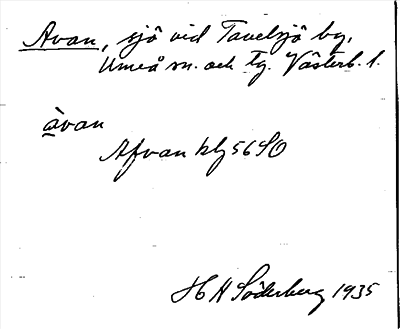 Avan, sjö vid Tavelsjö by,
Umeå sn. och tg. Västerb. l.
àvan
Afvan kbl 56 SO
H H Söderberg 1935